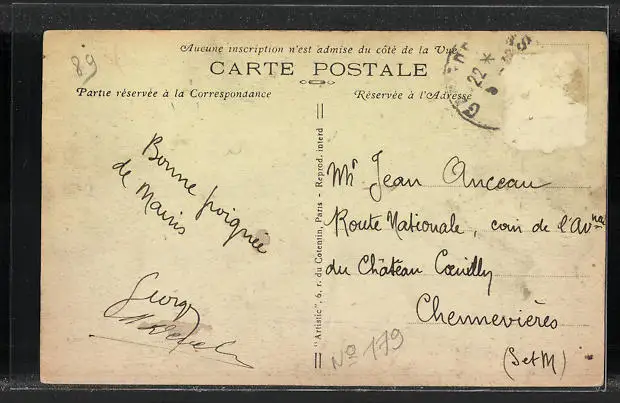 89
Aucune inscription n'est admise du côté de la Vue
CARTE POSTALE
Partie réservée à la Correspondance
Réservée à l'Adresse
22 *
Bonne poignée
de Mains
Georges
"Artistic", 6, r. du Cotentin, Paris - Reprod. interd
Mr Jean Anceau
Route Nationale, coin de l'Avnue
du Château Cœuilly
Chennevières
(S et M)
No 179